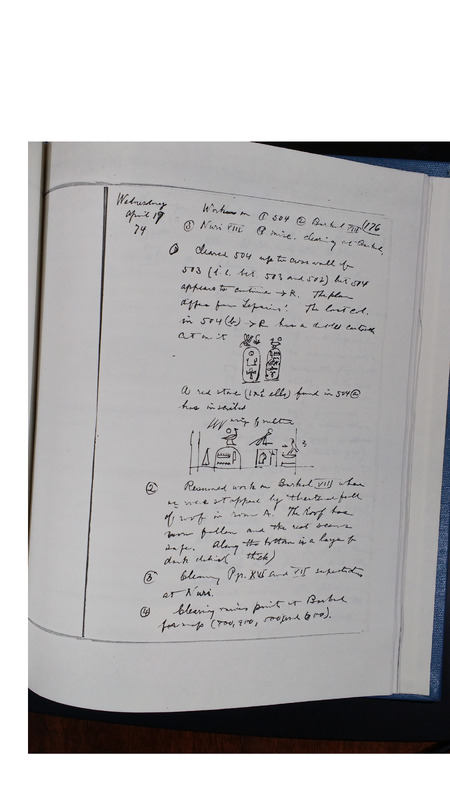 Wednesday
April 19
74
Work on ① 504 ② Barkal VIII 176
③ Nuri VIII ④ misc. clearing at Barkal,
① Cleared 504 up to cross wall of
503 (i.e. bet. 503 and 502) but 504
appears to continue → R. The plan
differs from Lepsius'. The last col.
in 504 (b) → R has a double cartouche
cut on it
A red stone (1x1 ells) found in 504
has inscribed
② Resumed work on Barkal VIII where
we were stopped by threatened fall
of roof in room A. The roof has
now fallen and the rest seems
safe. Along the bottom is a layer of
dark debris thick)
③ Clearing Pyr. XVI and VII
at Nuri.
④ Clearing various points at Barkal
for map (700, 900, 500 and 600).